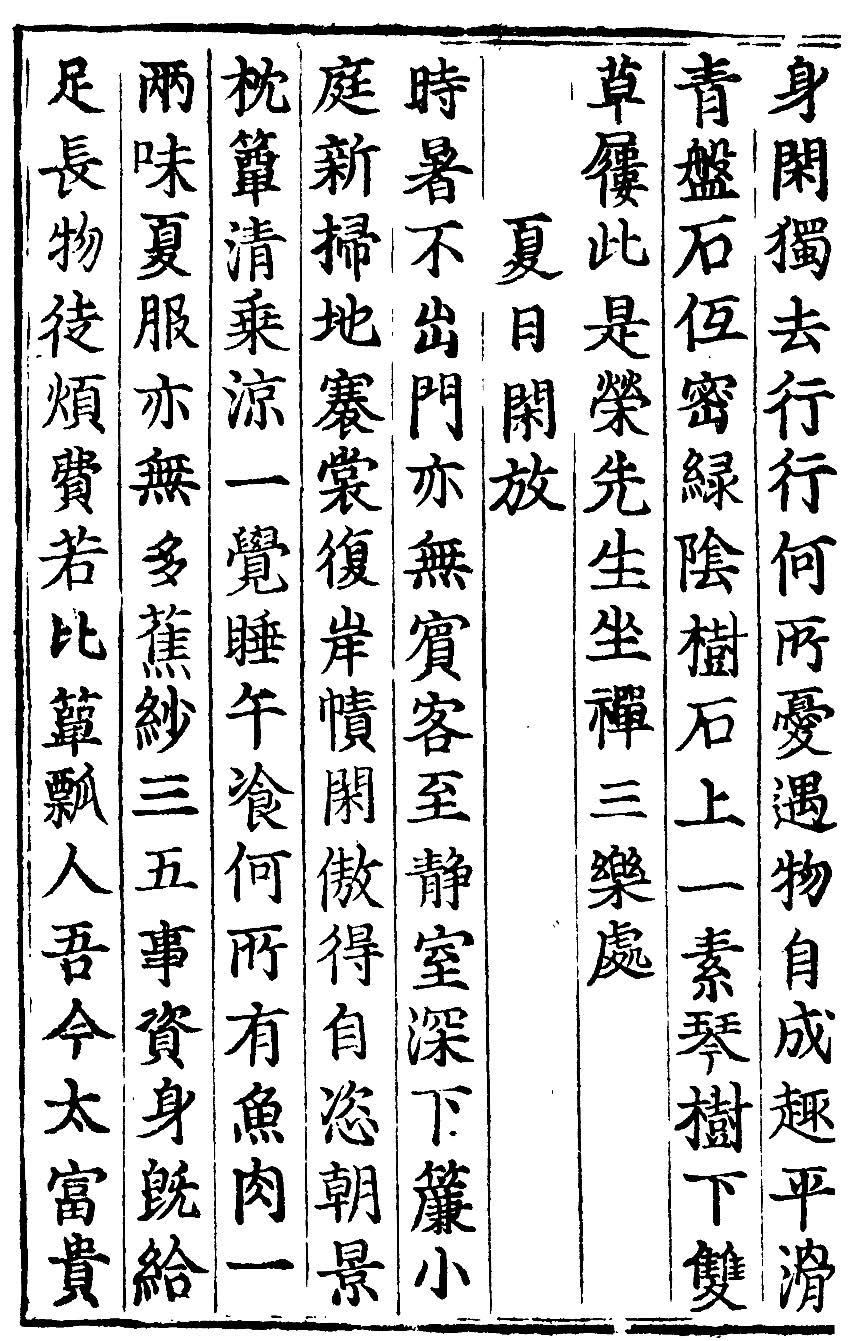 身閑獨去行行何所憂遇物自成趣平滑
青盤石仾密緑陰樹石上一素琴樹下雙
草屨此是榮先生坐禪三樂處
夏日閑放
時暑不出門亦無賓客至静室深下簾小
庭新掃地褰裳復岸幘閑傲得自恣朝景
枕簟清乗涼一覺睡午飡何所有魚肉一
兩味夏服亦無多蕉紗三五事資身旣給
足長物徒煩費若比簞瓢人吾今太富貴